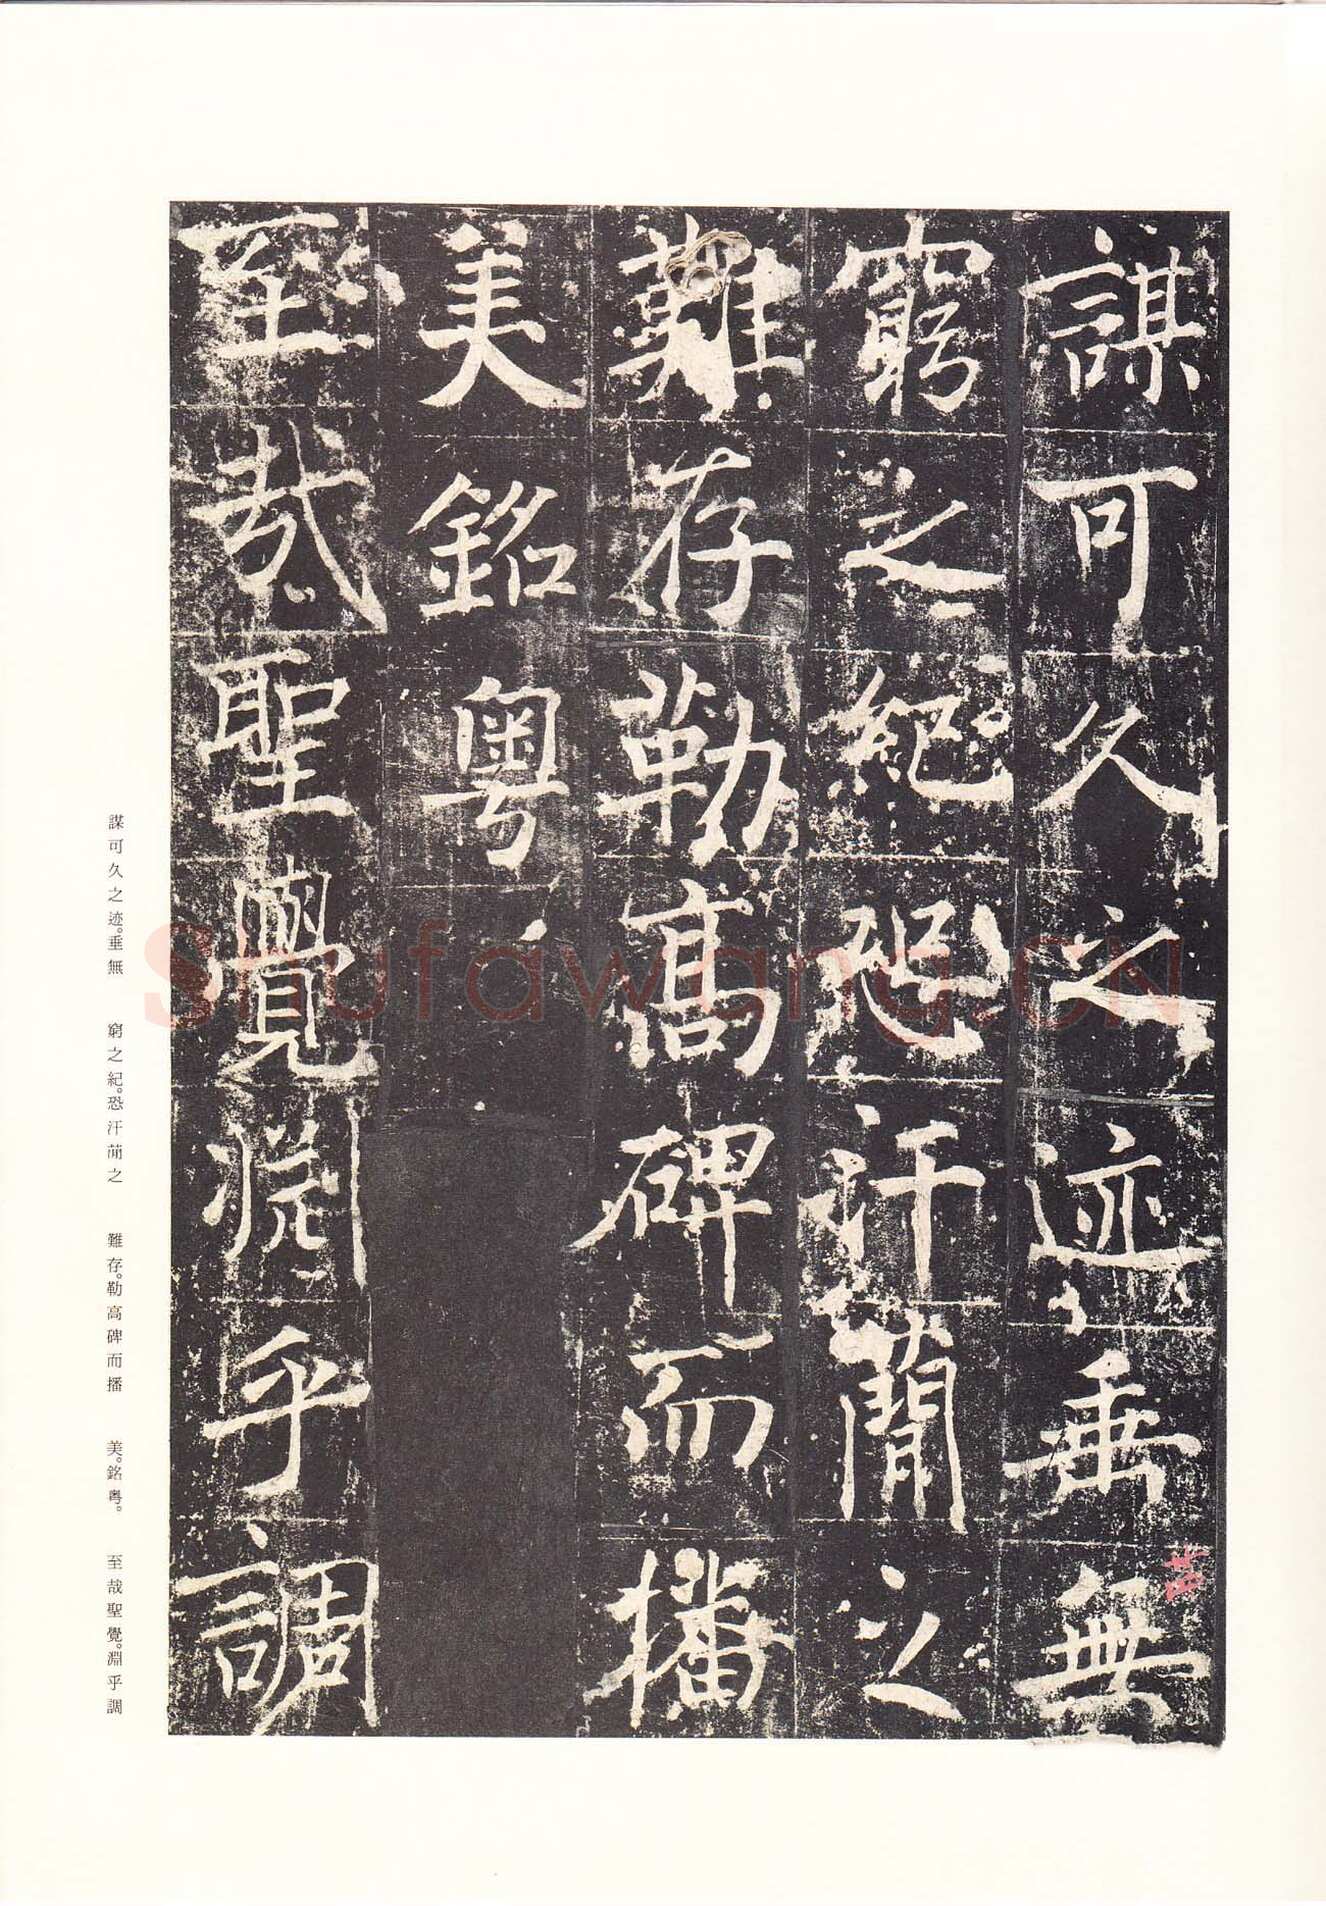 謀可久之迹垂無
窮之紀恐汗蕳之
難存勒高碑而播
美銘粤
至哉聖覺淵乎調
謀可久之迹。垂無　窮之紀。恐汗蕳之　難存。勒高碑而播　美。銘粤。　至哉聖覺。淵乎調
Shufawang.CN